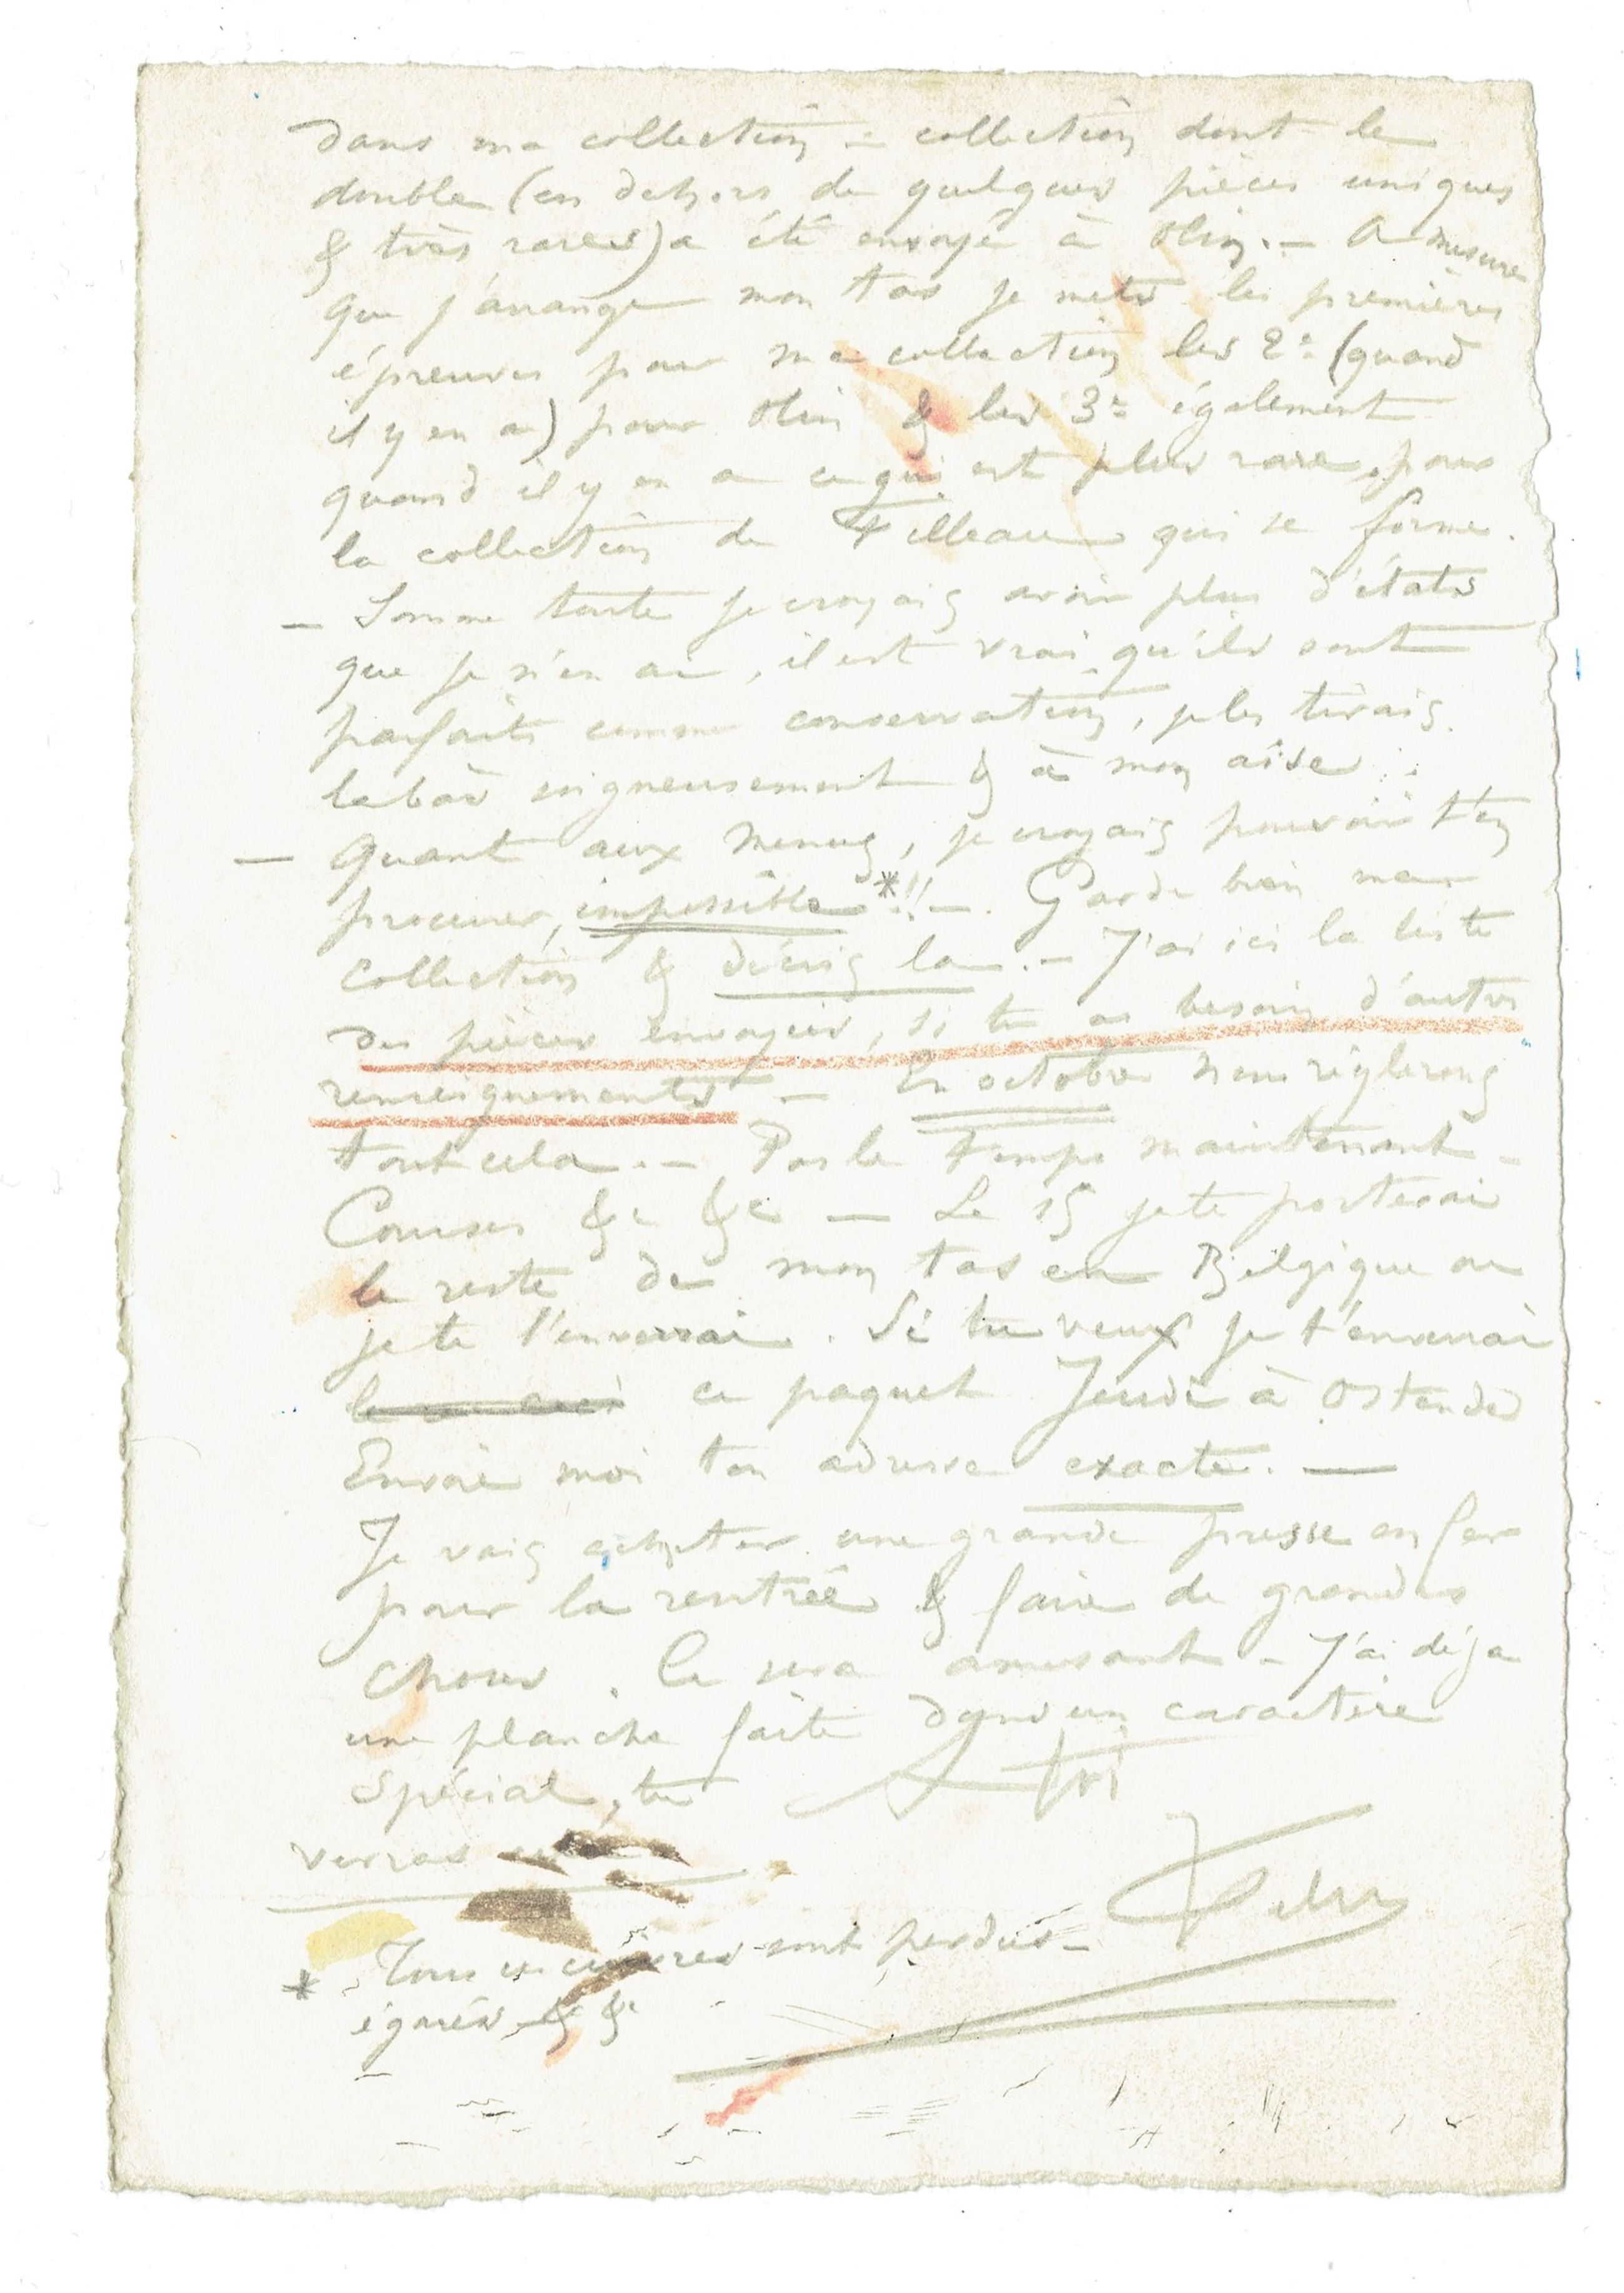 Dans ma collection — collection dont le
double (en dehors de quelques pièces uniques
& très rares) a été envoyé à Olin. — A mesure
que j'arrange mon tas je mets les premières
épreuves pour ma collection les 2e (quand
il y en a) pour Olin & les 3e également
quand il y en a ce qui est plus rare, pour
la collection de Filleau qui se forme.
— Somme toute je croyais avoir plus d'états
que je n'en ai, il est vrai qu'ils sont
parfaits comme conservation, je les tirais
là bas soigneusement & à mon aise.
— Quant aux menus, je croyais pouvoir t'en
procurer, impossible *!! —. Garde bien ma
collection & décris la. — J'ai ici la liste
des pièces envoyées, si tu as besoin d'autres
renseignements — En octobre nous réglerons
tout cela. — Pas le temps maintenant —
Courses &c &c — Le 15 je te porterai
le reste de mon tas en Belgique ou
je te l'enverrai. Si tu veux je t'enverrai
ce paquet Jeudi à Ostende
Envoie moi ton adresse exacte. —
Je vais acheter une grande presse en fer
pour la rentrée & faire de grandes
choses. Ce sera amusant — J'ai déjà
une planche faite dans un caractère
spécial, tu
verras
A toi
Fély
* Tous ces cuivres sont perdus —
égarés & &c